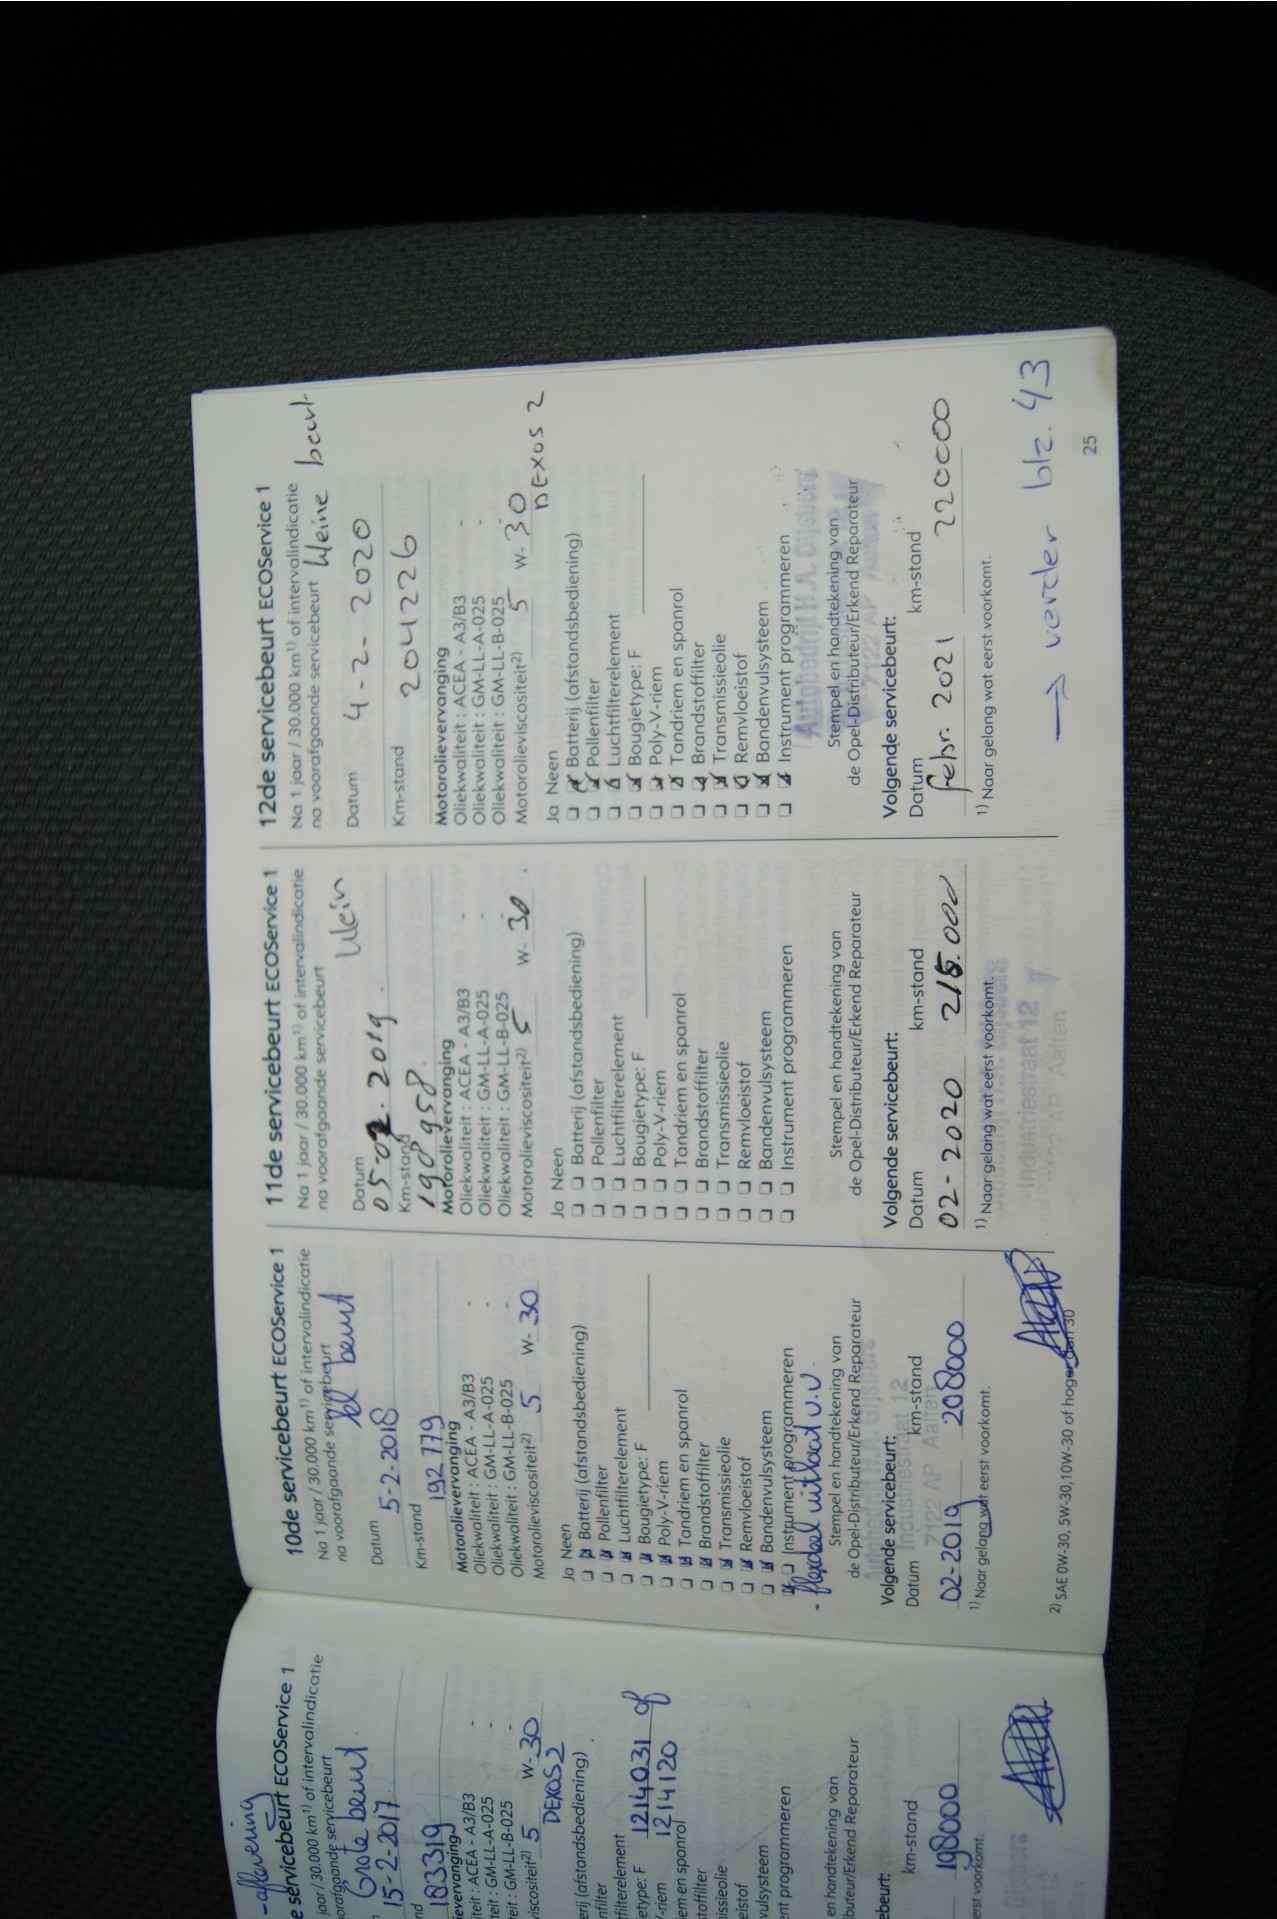 -aflevering
e servicebeurt ECOService 1
jaar / 30.000 km1) of intervalindicatie
orafgaande servicebeurt
Grote beurt.
15-2-2017
nd
183319
ievervanging
teit : ACEA - A3/B3
teit : GM-LL-A-025
teit : GM-LL-B-025
viscositeit2) 5 W-30
DEXOS2
erij (afstandsbediening)
nfilter
filterelement
ietype: F 1214031 of
/-riem 1214120
em en spanrol
toffilter
issieolie
eistof
vulsysteem
nt programmeren
en handtekening van
buteur/Erkend Reparateur
ebeurt:
km-stand
198000
erst voorkomt.
10de servicebeurt ECOService 1
Na 1 jaar / 30.000 km1) of intervalindicatie
na voorafgaande servicebeurt
kl beurt
Datum 5-2-2018
Km-stand 192779
Motorolievervanging
Oliekwaliteit : ACEA - A3/B3
Oliekwaliteit : GM-LL-A-025
Oliekwaliteit : GM-LL-B-025
Motorolieviscositeit2) 5 W-30
Ja Neen
Batterij (afstandsbediening)
Pollenfilter
Luchtfilterelement
Bougietype: F
Poly-V-riem
Tandriem en spanrol
Brandstoffilter
Transmissieolie
Remvloeistof
Bandenvulsysteem
Instrument programmeren
- flexdeel uitlaat v.v.
Stempel en handtekening van
de Opel-Distributeur/Erkend Reparateur
Industriestraat 12
7122 AP Aalten
Volgende servicebeurt:
Datum km-stand
02-2019 208000
1) Naar gelang wat eerst voorkomt.
2) SAE 0W-30, 5W-30,10W-30 of hoger dan 30
11de servicebeurt ECOService 1
Na 1 jaar / 30.000 km1) of intervalindicatie
na voorafgaande servicebeurt
klein
Datum
05-02.2019.
Km-stand
198958.
Motorolievervanging
Oliekwaliteit : ACEA - A3/B3
Oliekwaliteit : GM-LL-A-025
Oliekwaliteit : GM-LL-B-025
Motorolieviscositeit2) 5 W-30.
Ja Neen
Batterij (afstandsbediening)
Pollenfilter
Luchtfilterelement
Bougietype: F
Poly-V-riem
Tandriem en spanrol
Brandstoffilter
Transmissieolie
Remvloeistof
Bandenvulsysteem
Instrument programmeren
Stempel en handtekening van
de Opel-Distributeur/Erkend Reparateur
Volgende servicebeurt:
Datum km-stand
02-2020 215.000
1) Naar gelang wat eerst voorkomt.
Industriestraat 12
AP Aalten
12de servicebeurt ECOService 1
Na 1 jaar / 30.000 km1) of intervalindicatie
na voorafgaande servicebeurt kleine beurt
Datum 4-2-2020
Km-stand 204226
Motorolievervanging
Oliekwaliteit : ACEA - A3/B3
Oliekwaliteit : GM-LL-A-025
Oliekwaliteit : GM-LL-B-025
Motorolieviscositeit2) 5 W-30
DEXOS 2
Ja Neen
Batterij (afstandsbediening)
Pollenfilter
Luchtfilterelement
Bougietype: F
Poly-V-riem
Tandriem en spanrol
Brandstoffilter
Transmissieolie
Remvloeistof
Bandenvulsysteem
Instrument programmeren
Autobedrijf H.A.
Stempel en handtekening van
de Opel-Distributeur/Erkend Reparateur
7122 AP
Volgende servicebeurt:
Datum km-stand
febr. 2021 220000
1) Naar gelang wat eerst voorkomt.
→ verder blz. 43
25